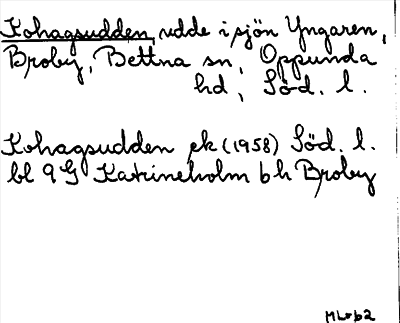 Kohagsudden, udde i sjön Yngaren,
Broby, Bettna sn, Oppunda
hd, Söd. l.
Kohagsudden ek (1958) Söd. l.
bl 9G Katrineholm bk Broby